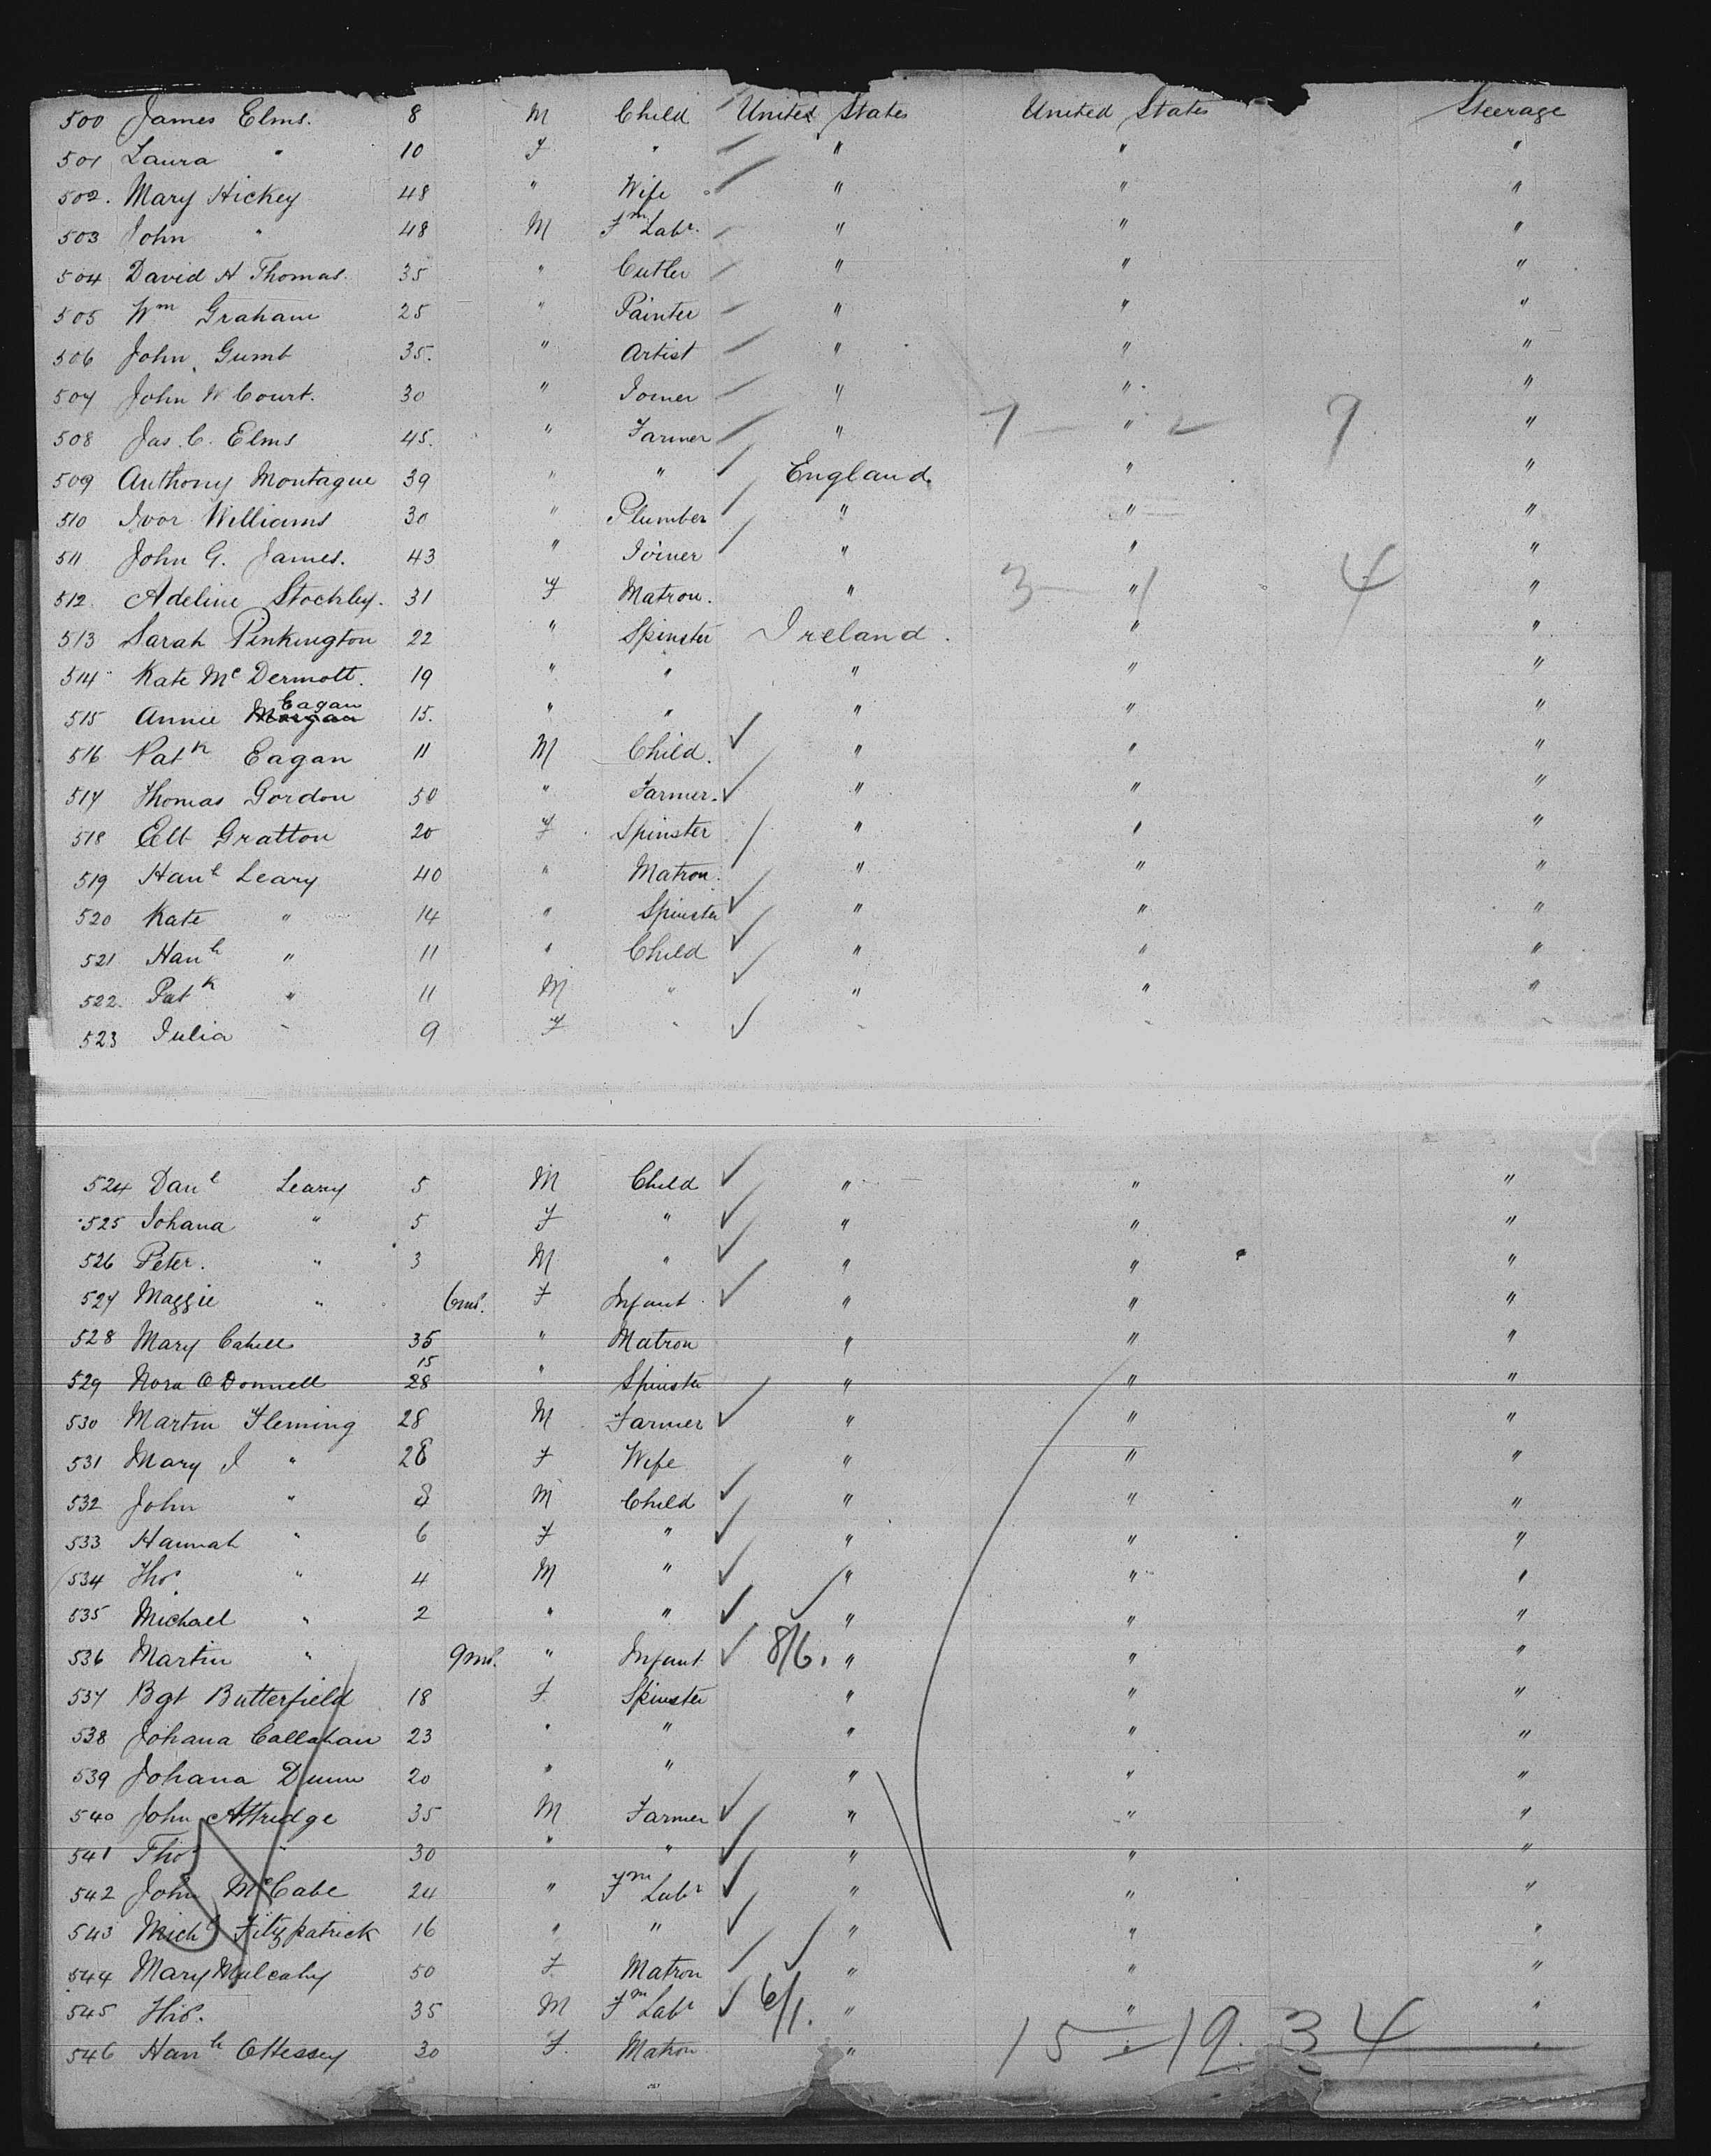 500 James Elms. 8 M Child United States United States Steerage
501 Laura " 10 F " " " "
502. Mary Hickey 48 " Wife " " "
503 John " 48 M Fm Labr. " " "
504 David H Thomas. 35 " Cutler " " "
505 Wm Graham 25 " Painter " " "
506 John Gumb 35. " Artist " " "
507 John W Court. 30 " Joiner " " "
508 Jas. C. Elms 45. " Farmer " 7 — " 2 9 "
509 Anthony Montague 39 " " England. " "
510 Ivor Williams 30 " Plumber " " "
511 John G. James. 43 " Joiner " " "
512. Adeline Stockley. 31 F Matron. " 3 — " 1 4 "
513 Sarah Pinkington 22 " Spinster Ireland. " "
514 Kate Mc Dermott. 19 " " " " "
Eagan
515 Annie Morgan 15. " " " " "
516 Patk Eagan 11 M Child. ✓ " " "
517 Thomas Gordon 50 " Farmer. ✓ " " "
518 Elb Gratton 20 F Spinster " " "
519 Hanh Leary 40 " Matron. " " "
520 Kate " 14 " Spinster ✓ " " "
521 Hanh " 11 " Child ✓ " " "
522. Patk " 11 M " ✓ " " "
523 Julia " 9 F " ✓ " "
524 Danl Leary 5 M Child ✓ " " "
525 Johana " 5 F " ✓ " " "
526 Peter. " 3 M " ✓ " " "
527 Maggie " 6ms. F Infant ✓ " " "
528 Mary Cahill 35 " Matron " " "
15
529 Nora O Donnell 28 " Spinster " " "
530 Martin Fleming 28 M Farmer ✓ " " "
531 Mary J " 28 F Wife " " "
532 John " 8 M Child ✓ " " "
533 Hannah " 6 F " ✓ " " "
534 Thos. " 4 M " ✓ " " "
535 Michael " 2 " " ✓ ✓ " " "
536 Martin " 9ms. " Infant ✓ 8/6. " " "
537 Bgt Butterfield 18 F Spinster " " "
538 Johana Callahan 23 " " " " "
539 Johana Dunn 20 " " " " "
540 John Attridge 35 M Farmer ✓ " " "
541 Thos " 30 " " ✓ " " "
542 John McCabe 24 " Fm Labr ✓ " " "
543 Michl Fitzpatrick 16 " " ✓ " " "
544 Mary Mulcahy 50 F Matron ✓ " " "
545 Thos. 35 M Fm Labr ✓ 6/1. " " "
546 Hanh OHessey 30 F. Matron " 15 — 19. 34 "